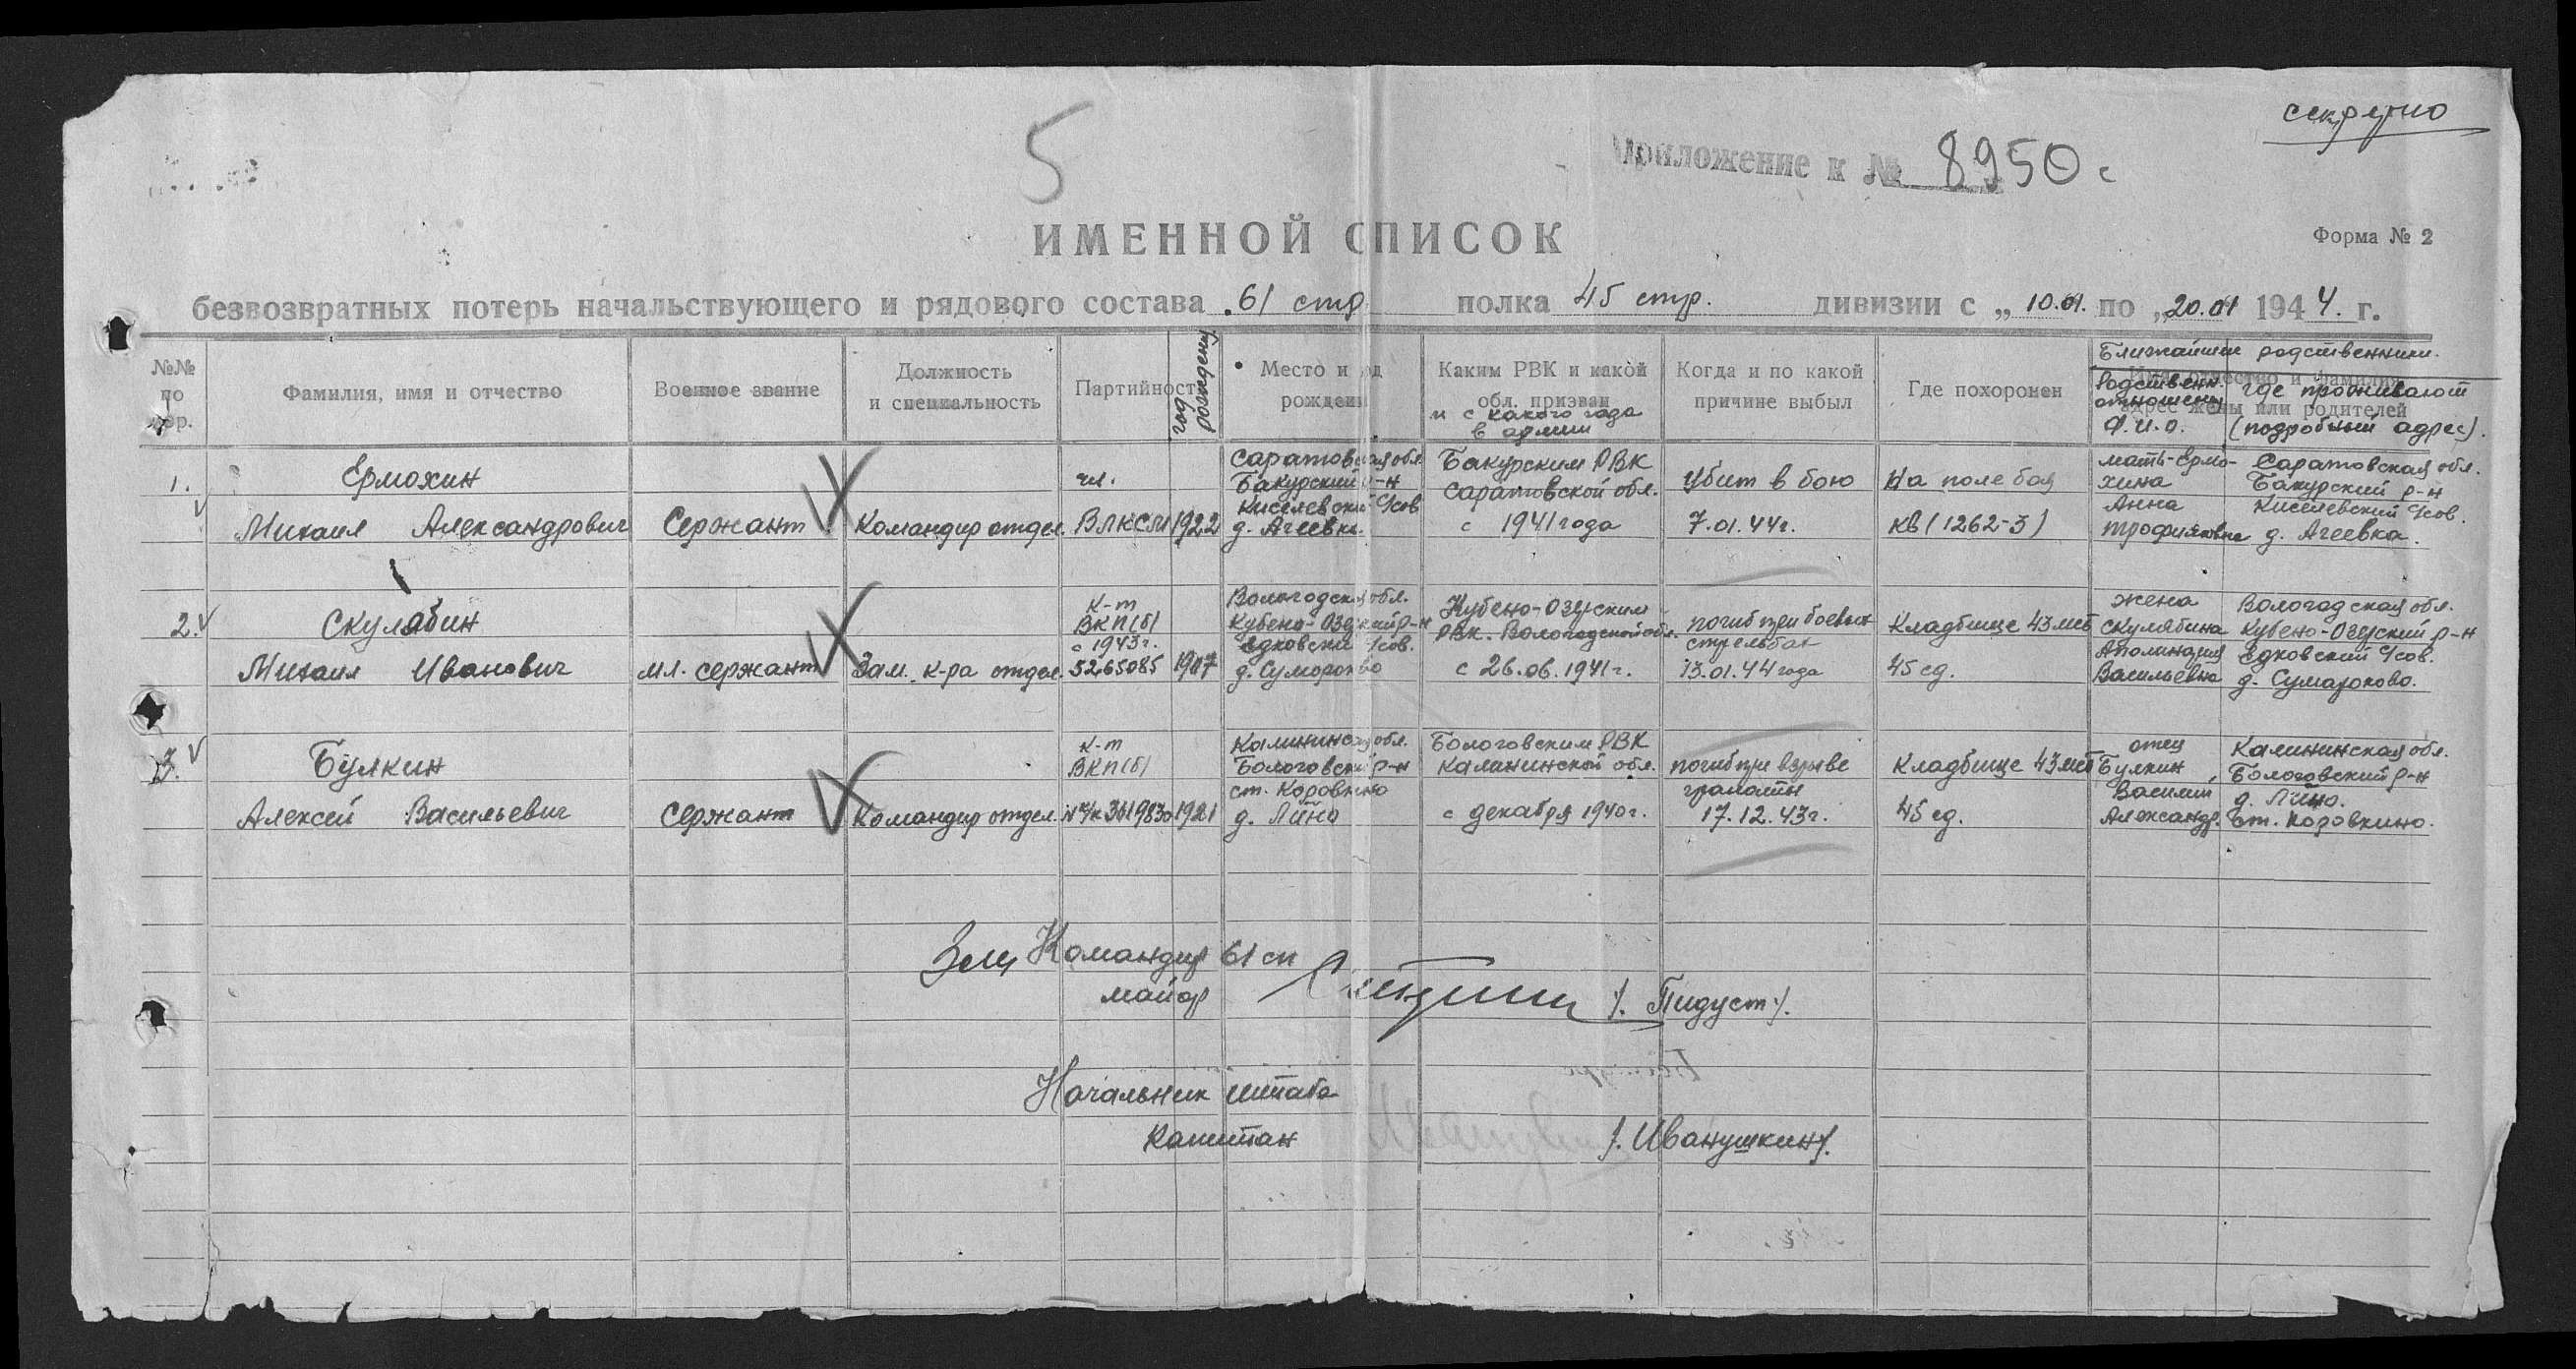 секретно
5
Приложение к № 8950 с
ИМЕННОЙ СПИСОК
Форма № 2
безвозвратных потерь начальствующего и рядового состава 61 стр полка 45 стр. дивизии с „ 10.01. по „ 20.01 1944. г.
№№ по пор.
Фамилия, имя и отчество
Военное звание
Должность и специальность
Партийность
год рождения
Место и год рождения
Каким РВК и какой обл. призван
и с какого года в армии
Когда и по какой причине выбыл
Где похоронен
Имя, отчество и фамилия, адрес жены или родителей
Ближайшие родственники.
Родственн. отношения Ф.И.О.
где проживают (подробный адрес).
1.
Ермохин
Михаил Александрович
Сержант
Командир отдел.
чл.
ВЛКСМ
1922
Саратовская обл.
Бакурский р-н
Киселевский с/сов
д. Агеевка.
Бакурским РВК
Саратовской обл.
с 1941 года
Убит в бою
7.01.44г.
На поле боя
кв (1262-3)
мать-Ермо-
хина
Анна
Трофимовна
Саратовская обл.
Бакурский р-н
Киселевский с/сов.
д. Агеевка.
2.
Скулябин
Михаил Иванович
мл. сержант
Зам. к-ра отдел.
к-т
ВКП(б)
с 1943г.
5265085
1907
Вологодская обл.
Кубено-Озерский р-н
Едковский с/сов.
д. Суморохово
Кубено-Озерским
РВК. Вологодской обл.
с 26.06.1941г.
погиб при боевых
стрельбах
13.01.44 года
Кладбище 43 мсб
45 сд.
жена
Скулябина
Аполинария
Васильевна
Вологодская обл.
Кубено-Озерский р-н
Едковский с/сов.
д. Сумароково.
3.
Булкин
Алексей Васильевич
Сержант
Командир отдел.
к-т
ВКП(б)
1921
Калининская обл.
Бологовский р-н
ст. Коровкино
д. Лино
Бологовским РВК
Калининской обл.
с декабря 1940г.
погиб при взрыве
гранаты
17.12.43г.
Кладбище 43 мсб
45 сд.
отец
Булкин
Василий
Александр.
Калининская обл.
Бологовский р-н
д. Лино.
ст. Коровкино.
Зам Командир 61 сп
майор /. Пидуст /.
Начальник штаба
капитан /. Иванушкин /.